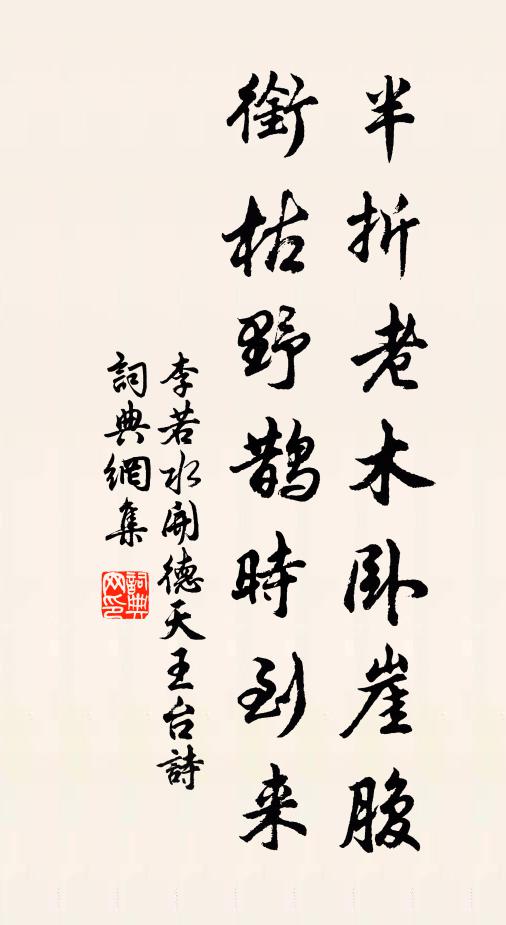 半折老木臥崖腹
銜枯野鵲時到来
李若水開德天王台詩
詞典網集
詞典网印